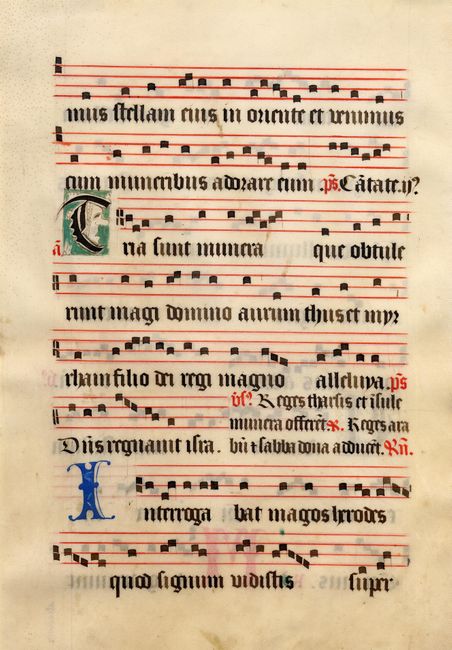 mus stellam eius in oriente et venimus
cum muneribus adorare eum .p̄s. Cātate.ij?
ā. Tria sunt munera que obtule
runt magi domino aurum thus et myr
rham filio dei regi magno alleluya. p̄s
v̄s? Reges tharsis et īsule
munera offerēt. R. Reges ara
Dn̄s regnauit .ist̄a. bū ⁊ sabba dona adducēt. R̄n.
Interrogabat magos herodes
quod signum vidistis super